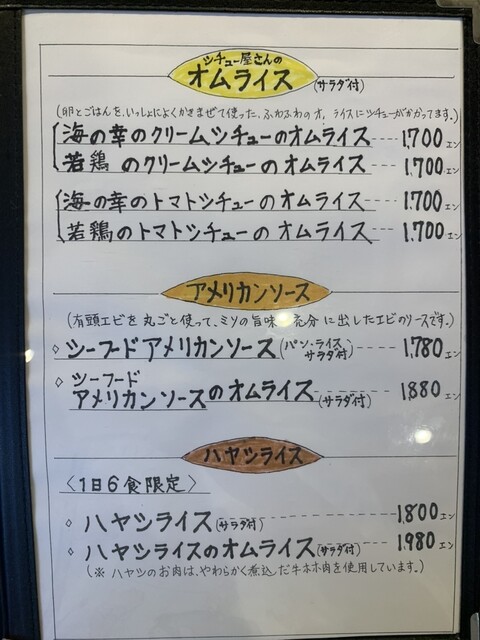 シチュー屋さんの
オムライス (サラダ付)
(卵とごはんを、いっしょによくかきまぜて使った、ふわふわのオ,ライスにシチューがかかってます。)
海の幸のクリームシチューのオムライス --- 1,700 エン
若鶏のクリームシチューのオムライス --- 1,700 エン
海の幸のトマトシチューのオムライス --- 1,700 エン
若鶏のトマトシチューのオムライス --- 1,700 エン
アメリカンソース
(有頭エビを丸ごと使って、ミソの旨味 充分に出したエビのソースです。)
◇シーフードアメリカンソース (パン・ライス サラダ付) --- 1,780 エン
◇シーフード
アメリカンソースのオムライス (サラダ付) --- 1,880 エン
ハヤシライス
〈1日6食限定〉
◇ハヤシライス (サラダ付) --- 1,800 エン
◇ハヤシライスのオムライス (サラダ付) --- 1,980 エン
(※ハヤシのお肉は、やわらかく煮込んだ牛ホホ肉を使用しています。)